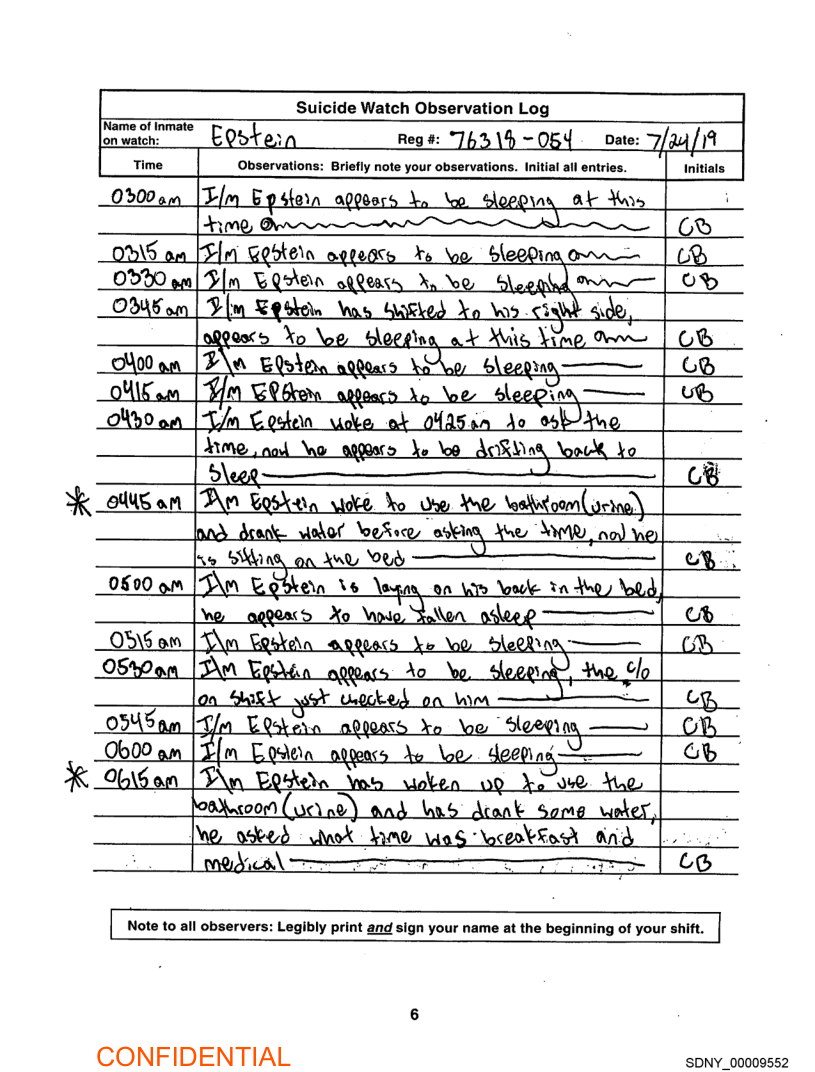 Suicide Watch Observation Log
Name of Inmate on watch: Epstein Reg #: 76318-054 Date: 7/24/19
Time Observations: Briefly note your observations. Initial all entries. Initials
0300 am I/m Epstein appears to be sleeping at this
time CB
0315 am I/m Epstein appears to be sleeping CB
0330 am I/m Epstein appears to be sleeping CB
0345 am I/m Epstein has shifted to his right side,
appears to be sleeping at this time CB
0400 am I/m Epstein appears to be sleeping CB
0415 am I/m Epstein appears to be sleeping CB
0430 am I/m Epstein woke at 0425 am to ask the
time, now he appears to be drifting back to
sleep CB
* 0445 am I/m Epstein woke to use the bathroom (urine)
and drank water before asking the time, now he
is sitting on the bed CB
0500 am I/m Epstein is laying on his back in the bed,
he appears to have fallen asleep CB
0515 am I/m Epstein appears to be sleeping CB
0530 am I/m Epstein appears to be sleeping, the c/o
on shift just checked on him CB
0545 am I/m Epstein appears to be sleeping CB
0600 am I/m Epstein appears to be sleeping CB
* 0615 am I/m Epstein has woken up to use the
bathroom (urine) and has drank some water,
he asked what time was breakfast and
medical CB
Note to all observers: Legibly print and sign your name at the beginning of your shift.
6
CONFIDENTIAL
SDNY_00009552